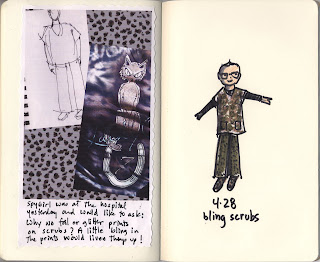 Spygirl was at the hospital
yesterday and would like to ask:
Why no foil or glitter prints
on scrubs? A little bling in
the prints would liven things up!
4.28
bling scrubs